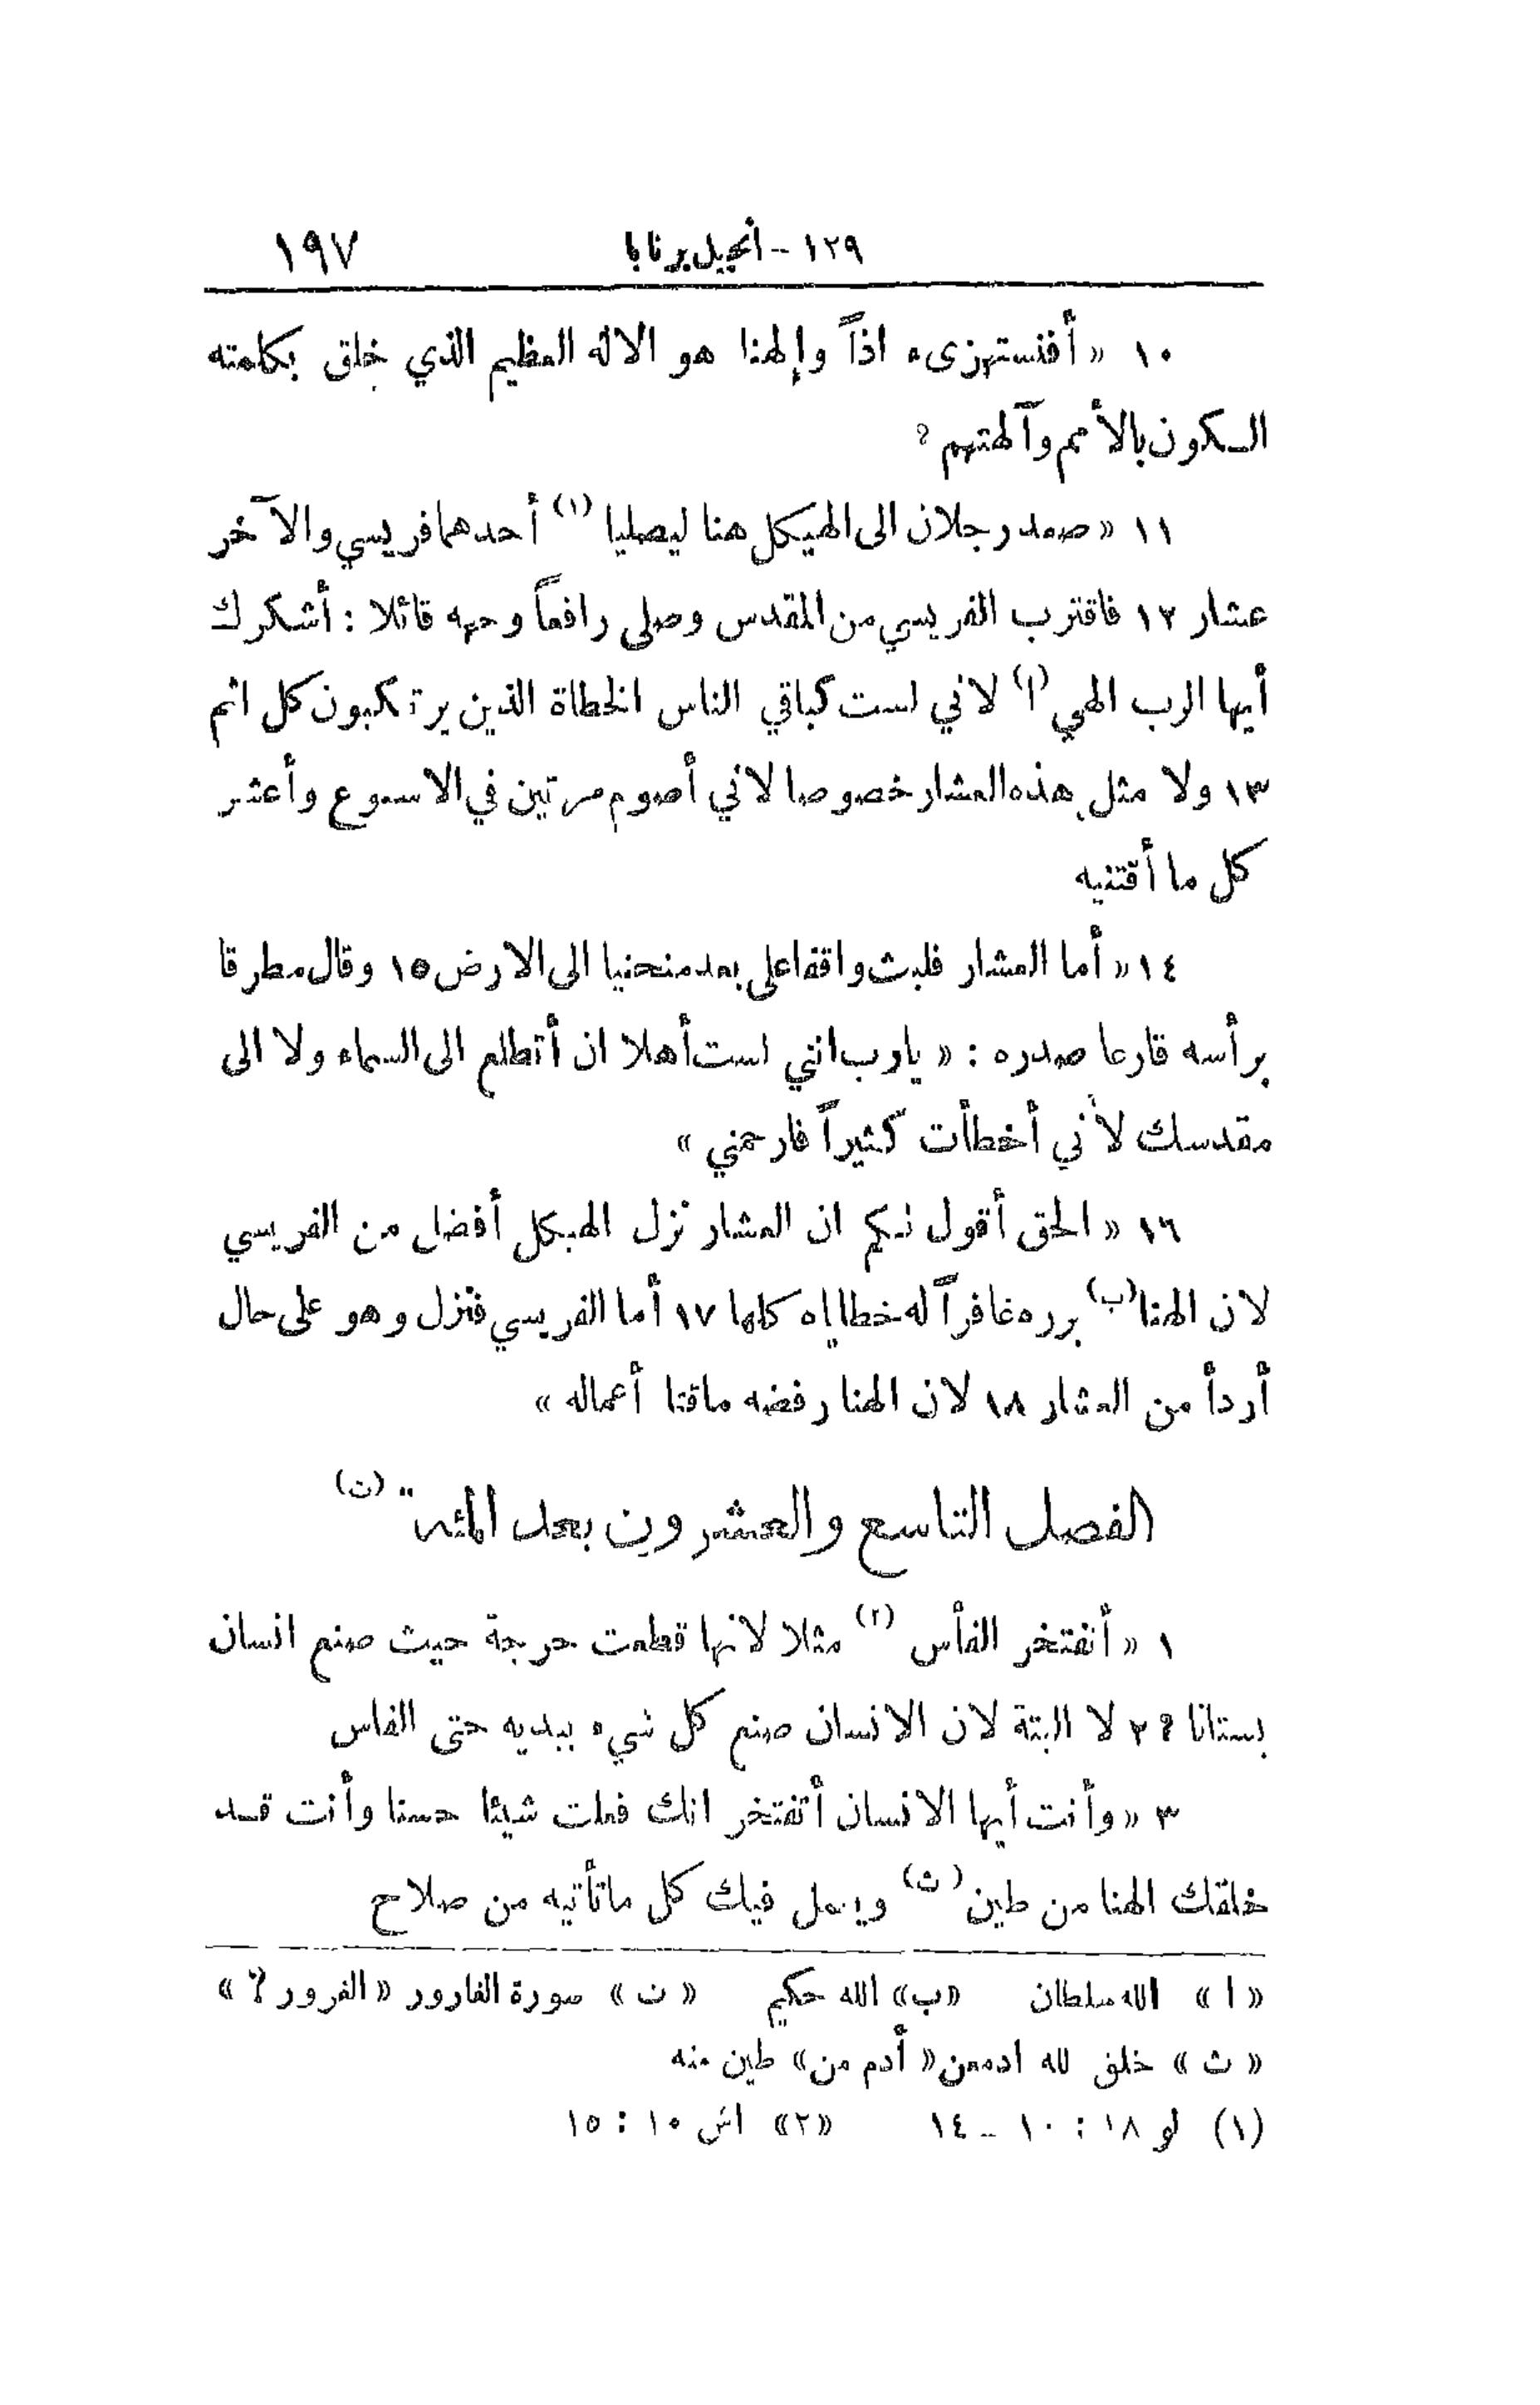 ١٢٩ - أنجيل برنابا ١٩٧
١٠ « أفنستهزىء اذاً وإلهنا هو الاله العظيم الذي خلق بكلمته
السكون بالأمم وآلهتهم ?
١١ « صعد رجلان الى الهيكل هنا ليصليا (١) أحدهما فريسي والآخر
عشار ١٢ فاقترب الفريسي من المقدس وصلى رافعاً وجهه قائلا : أشكرك
أيها الرب الهي (ا) لاني لست كباقي الناس الخطاة الذين يرتكبون كل اثم
١٣ ولا مثل هذه العشار خصوصا لاني أصوم مرتين في الاسبوع وأعشر
كل ما أقتنيه
١٤ « أما العشار فلبث واقفا على بعد منحنيا الى الارض ١٥ وقال مطرقا
برأسه قارعا صدره : « يارب انني لست أهلا ان أتطلع الى السماء ولا الى
مقدسك لأني أخطأت كثيراً فارحمني »
١٦ « الحق أقول لكم ان العشار نزل الهيكل أفضل من الفريسي
لان الهنا (ب) برره غافراً له خطاياه كلها ١٧ أما الفريسي فنزل وهو على حال
أردأ من العشار ١٨ لان الهنا رفضه ماقتا أعماله »
الفصل التاسع والعشرون بعد المئة (ت)
١ « أتفتخر الفأس (٢) مثلا لانها قطعت حرجة حيث صنع انسان
بستانا ? ٢ لا البتة لان الانسان صنع كل شيء بيديه حتى الفاس
٣ « وأنت أيها الانسان أتفتخر انك فعلت شيئا حسنا وأنت قد
خلقك الهنا من طين (ث) ويعمل فيك كل ماتأتيه من صلاح
« ا » الله سلطان « ب » الله حكيم « ت » سورة الغارور « الغرور ? »
« ث » خلق لله ادممن « أدم من » طين منه
(١) لو ١٨ : ١٠ - ١٤ «٢» اش ١٠ : ١٥